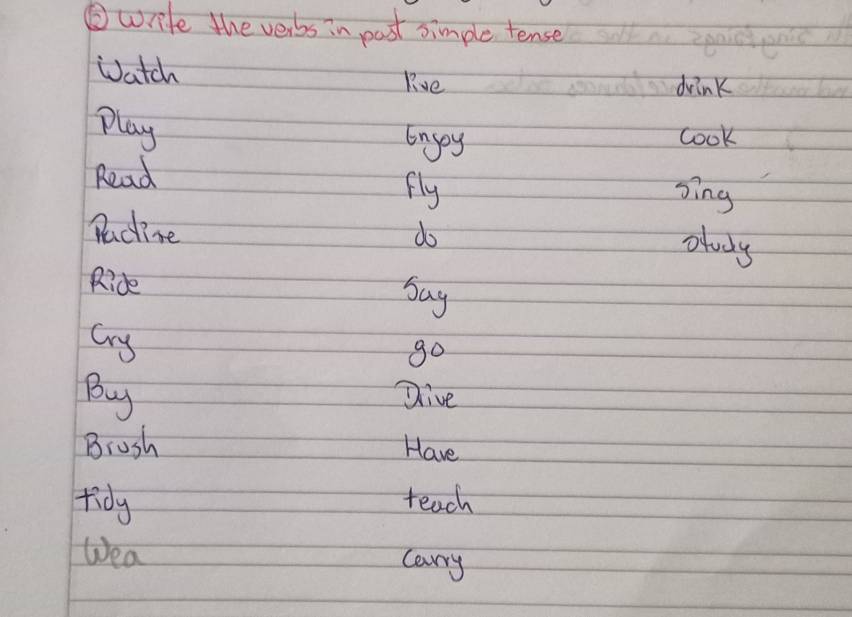 ② Write the verbs in past simple tense
Watch live drink
Play Enjoy cook
Read fly sing
Practise do study
Ride Say
Cry go
Buy Drive
Brush Have
tidy teach
Wea carry